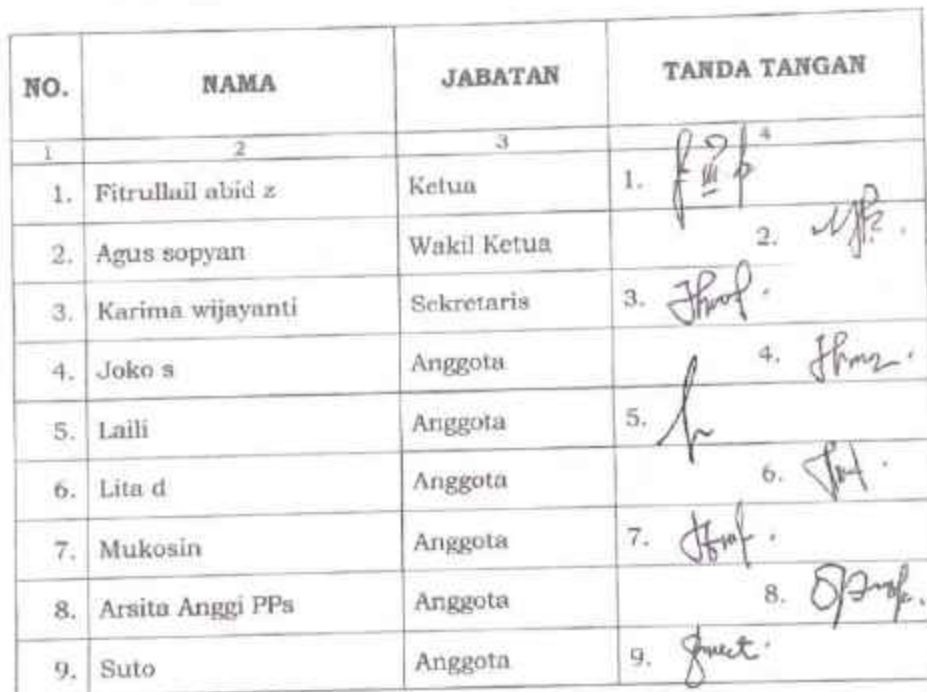 NO. NAMA JABATAN TANDA TANGAN
1 2 3 4
1. Fitrullail abid z Ketua 1.
2. Agus sopyan Wakil Ketua 2.
3. Karima wijayanti Sekretaris 3.
4. Joko s Anggota 4.
5. Laili Anggota 5.
6. Lita d Anggota 6.
7. Mukosin Anggota 7.
8. Arsita Anggi PPs Anggota 8.
9. Suto Anggota 9.